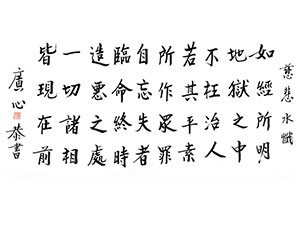 慈悲水懺
如經所明
地獄之中
不枉治人
若其平素
所作眾罪
自忘失者
臨命終時
造惡之處
一切諸相
皆現在前
廣心恭書